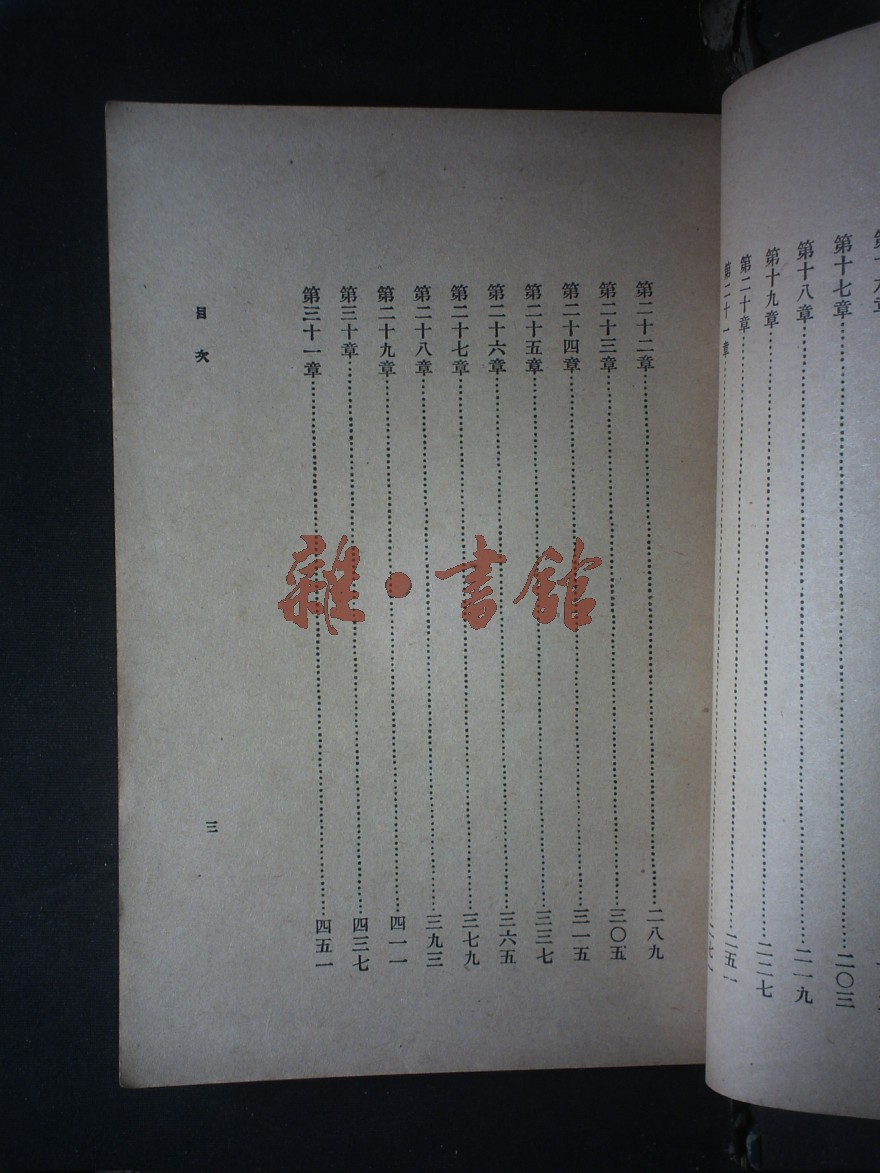 第十七章⋯⋯二〇三
第十八章⋯⋯二一九
第十九章⋯⋯二二七
第二十章⋯⋯二五一
第二十一章⋯⋯
第二十二章⋯⋯二八九
第二十三章⋯⋯三〇五
第二十四章⋯⋯三一五
第二十五章⋯⋯三三七
第二十六章⋯⋯三六五
第二十七章⋯⋯三七九
第二十八章⋯⋯三九三
第二十九章⋯⋯四一一
第三十章⋯⋯四三七
第三十一章⋯⋯四五一
目次
三
雜·書館